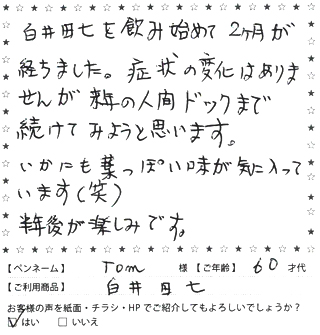 白井田七を飲み始めて2ヶ月が
経ちました。症状の変化はありま
せんが来年の人間ドックまで
続けてみようと思います。
いかにも葉っぽい味が気に入って
います(笑)
半年後が楽しみです。
【ペンネーム】 Tom 様 【ご年齢】 60 才代
【ご利用商品】 白井田七
お客様の声を紙面・チラシ・HPでご紹介してもよろしいでしょうか?
☑はい □いいえ